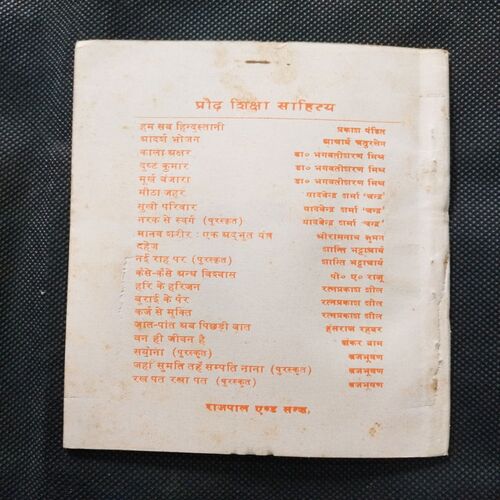 प्रौढ़ शिक्षा साहित्य
हम सब हिन्दुस्तानी प्रकाश पंडित
आदर्श भोजन आचार्य चतुरसेन
काला अक्षर डा० भगवतीशरण मिश्र
दुष्ट कुमार डा० भगवतीशरण मिश्र
मूर्ख बंजारा डा० भगवतीशरण मिश्र
मीठा जहर यादवेन्द्र शर्मा 'चन्द्र'
सुखी परिवार यादवेन्द्र शर्मा 'चन्द्र'
नरक से स्वर्ग (पुरस्कृत) यादवेन्द्र शर्मा 'चन्द्र'
मानव शरीर : एक अद्भुत यंत्र श्रीरामनाथ सुमन
दहेज शान्ति भट्टाचार्य
नई राह पर (पुरस्कृत) शान्ति भट्टाचार्य
कैसे-कैसे अन्ध विश्वास पी० ए० राजू
हरि के हरिजन रत्नप्रकाश शील
बुराई के पैर रत्नप्रकाश शील
कर्ज से मुक्ति रत्नप्रकाश शील
जात-पांत अब पिछड़ी बात हंसराज रहबर
वन ही जीवन है शंकर बाम
सयोना (पुरस्कृत) ब्रजभूषण
जहां सुमति तहँ सम्पति नाना (पुरस्कृत) ब्रजभूषण
रख पत रखा पत (पुरस्कृत) ब्रजभूषण
राजपाल एण्ड सन्ज़